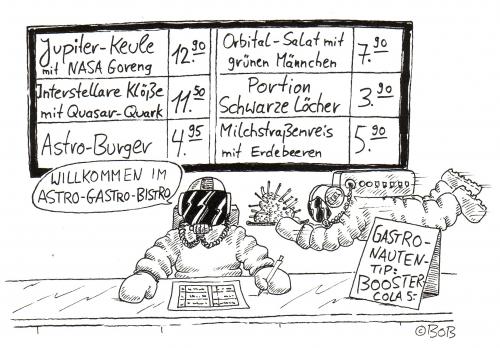 Jupiter-Keule
mit NASA Goreng
12.90
Interstellare Klöße
mit Quasar-Quark
11.50
Astro-Burger
4.95
Orbital-Salat mit
grünen Männchen
7.90
Portion
Schwarze Löcher
3.90
Milchstraßenreis
mit Erdebeeren
5.90
WILLKOMMEN IM
ASTRO-GASTRO-BISTRO
GASTRO-
NAUTEN-
TIP:
BOOSTER
COLA 5.-
©BOB